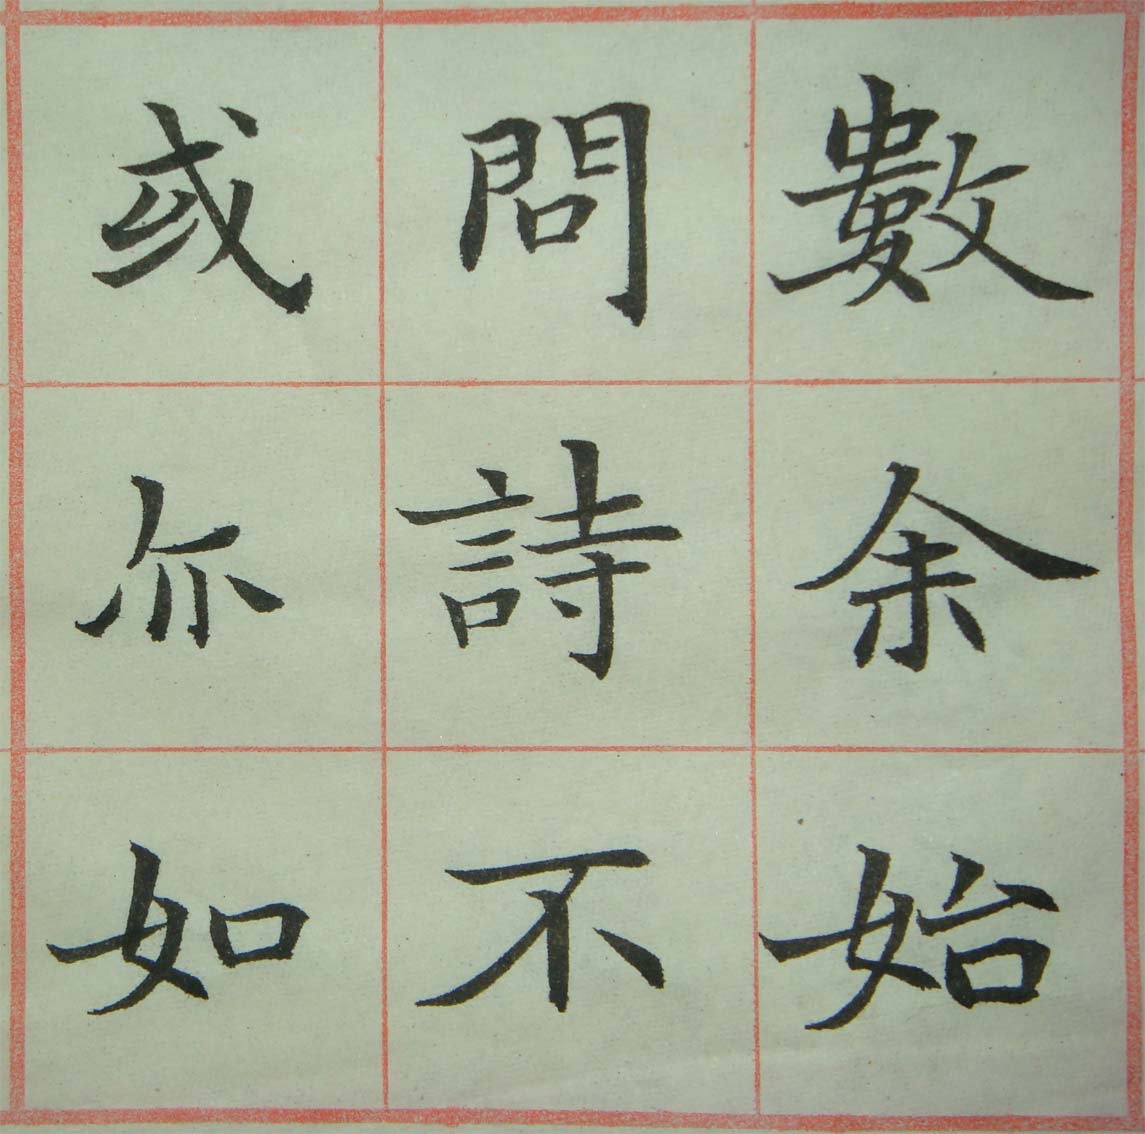 數余始
問詩不
或亦如